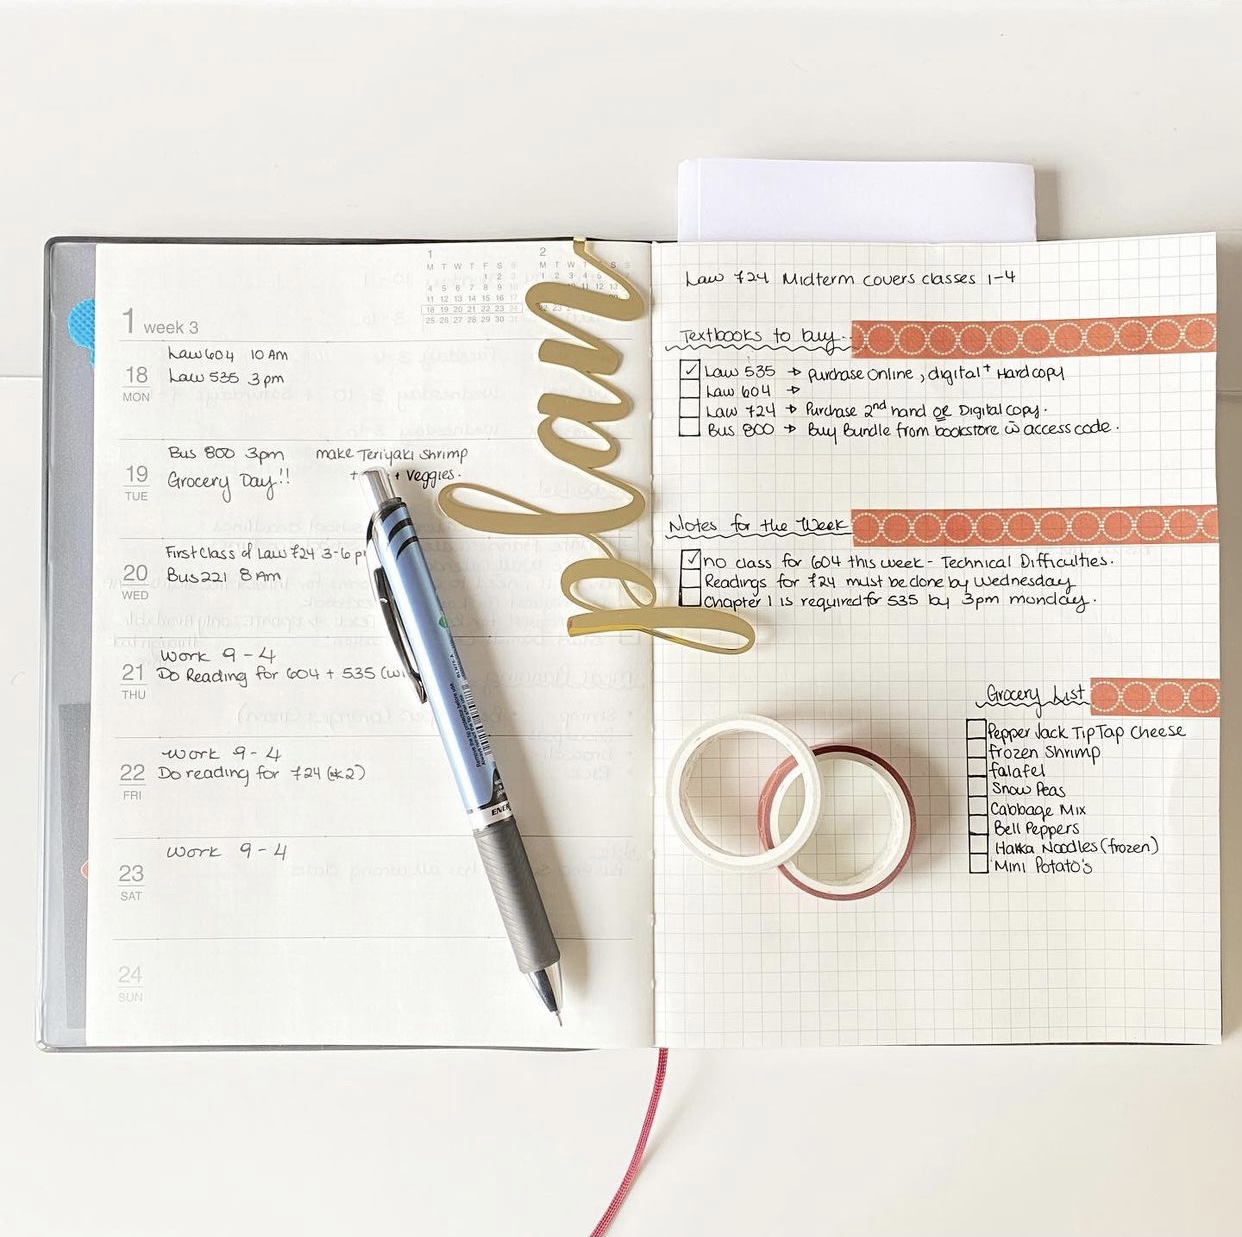 plan
1
M T W T F S S
1 2 3
4 5 6 7 8 9 10
11 12 13 14 15 16 17
18 19 20 21 22 23 24
25 26 27 28 29 30 31
2
M T W T F S S
1 2 3 4 5 6
1 week 3
18 MON
Law 604 10 AM
Law 535 3pm
19 TUE
Bus 800 3pm make Teriyaki Shrimp
Grocery Day!! + Veggies.
20 WED
First Class of Law 724 3-6 p
Bus 221 8 AM
21 THU
Work 9-4
Do Reading for 604 + 535 (w
22 FRI
Work 9-4
Do reading for 724 (wk 2)
23 SAT
Work 9-4
24 SUN
ENER
Law 724 Midterm covers classes 1-4
Textbooks to buy..
Law 535 → purchase Online, digital + Hardcopy
Law 604 →
Law 724 → Purchase 2nd hand or Digital copy.
Bus 800 → Buy Bundle from bookstore w access code.
Notes for the Week
no class for 604 this week - Technical Difficulties.
Readings for 724 must be done by Wednesday
Chapter 1 is required for 535 by 3pm monday.
Grocery List
Pepper Jack TipTap Cheese
frozen Shrimp
falafel
Snow Peas
Cabbage Mix
Bell Peppers
Hakka Noodles (frozen)
Mini Potato's